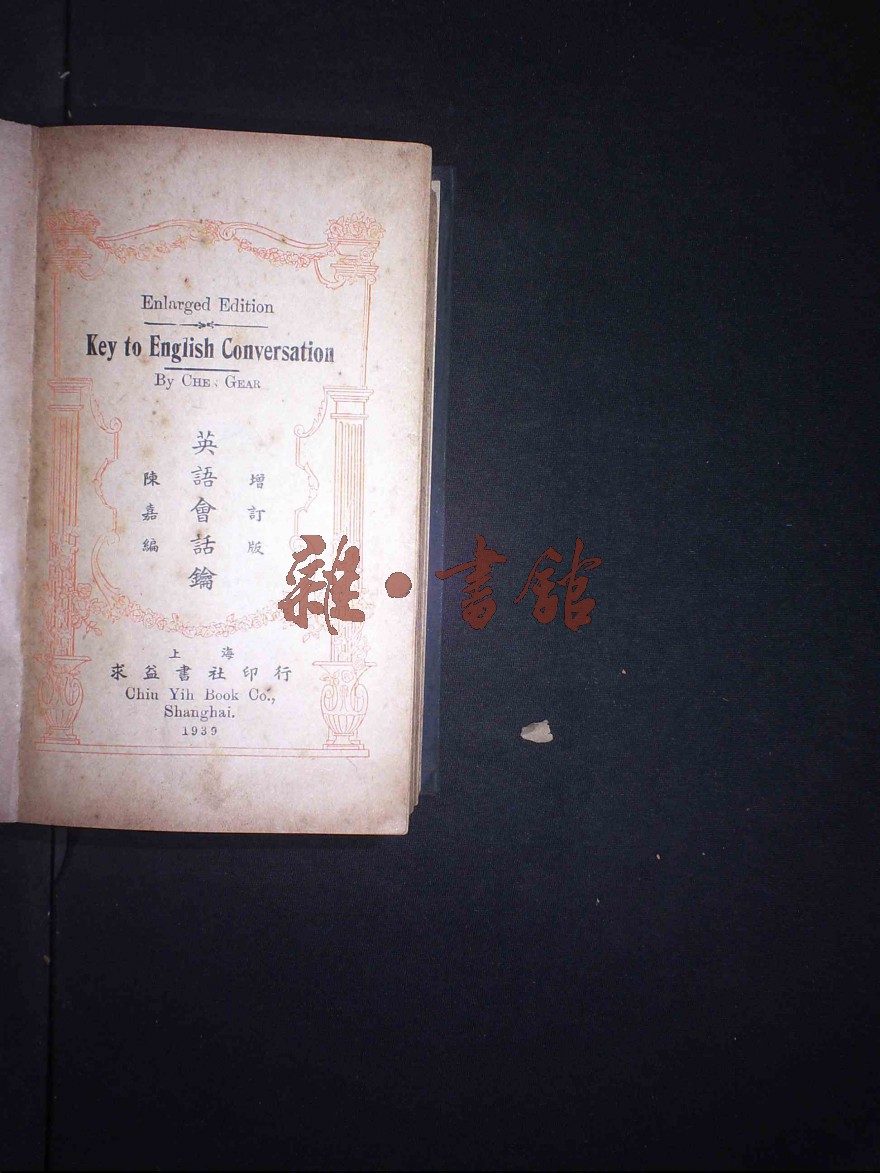 Enlarged Edition
Key to English Conversation
By CHEN GEAR
增訂版
英語會話鑰
陳嘉編
上海
求益書社印行
Chiu Yih Book Co.,
Shanghai.
1939
雜•書館